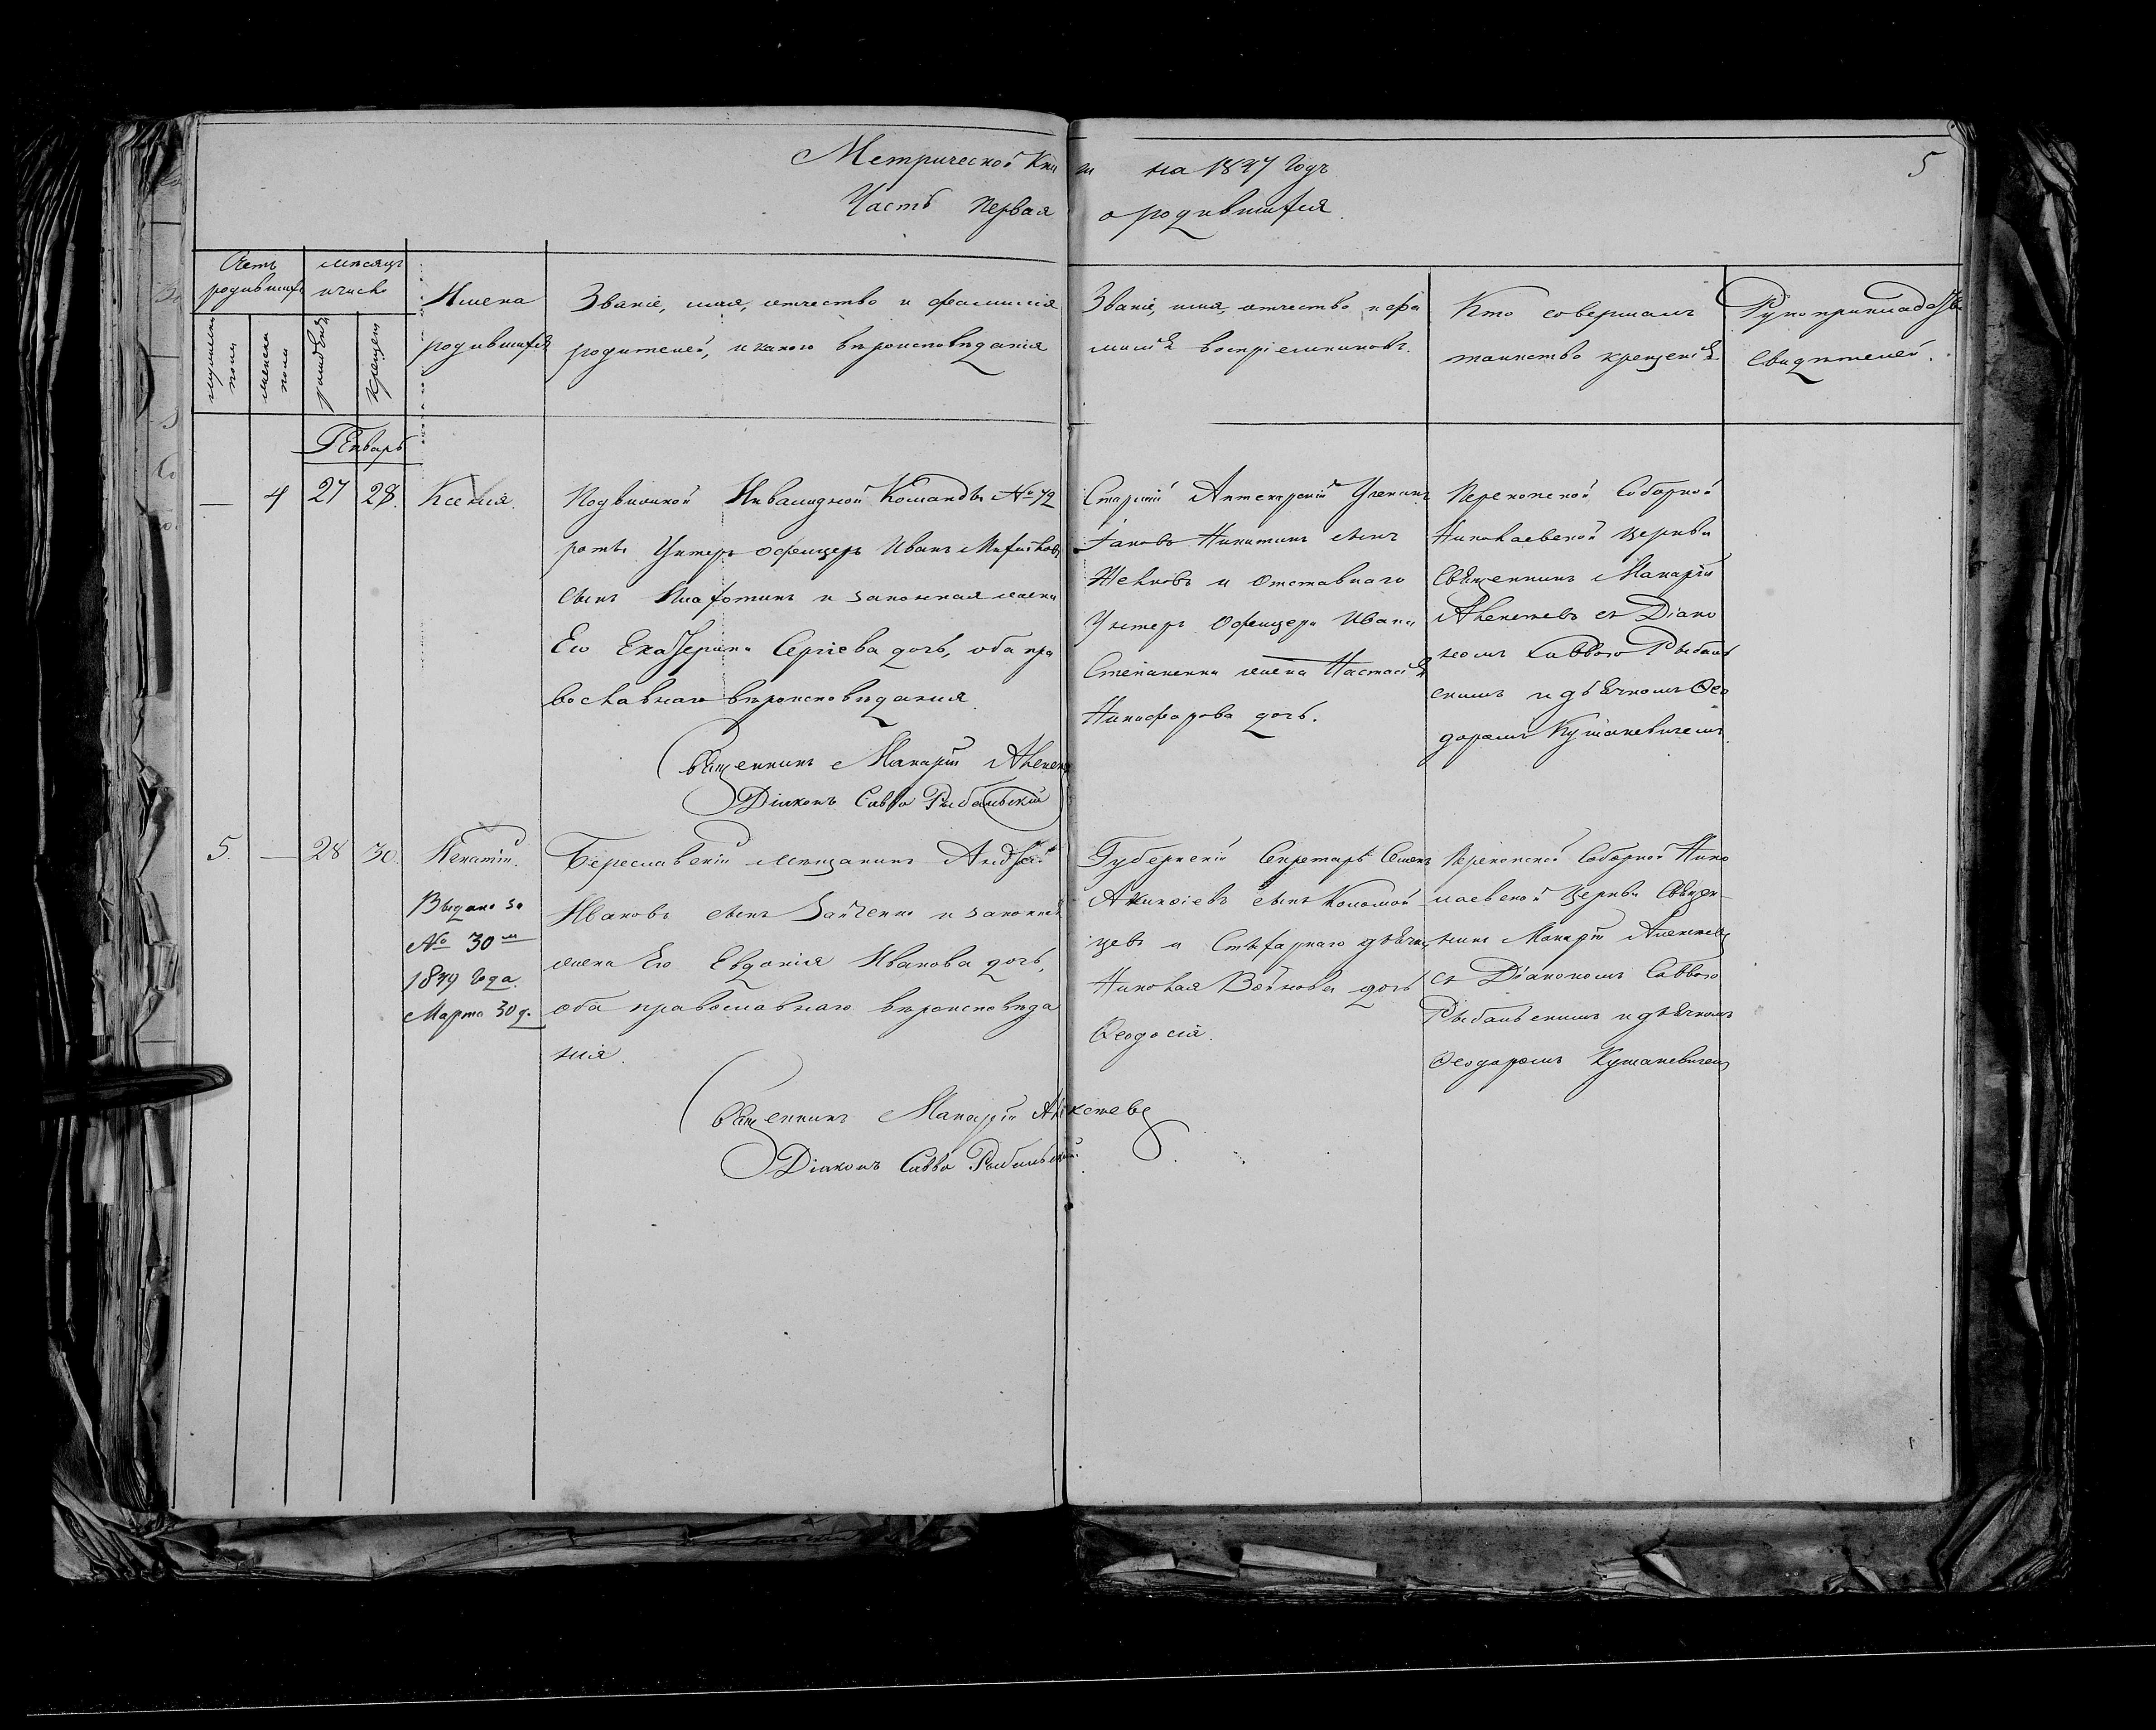 Метрической Кни ги на 1837 Годъ 5
Часть первая о родившихся.
Счетъ родившихс
мужеска пола
женска пола
месяцъ и число
рождения
крещен
Имена
родившихся
Званіе, имя, отчество и фамилія
родителей, и какого вероисповеданія
Званіе, имя, отчество и фа
милія воспріемниковъ.
Кто совершалъ
таинство крещенія
Рукоприкладство
Свидетелей.
Генварь
— 4 27 28. Ксенія.
Подвижной Инвалидной Команды № 72
роты Унтеръ офецеръ Иванъ
сынъ и законная жена
Его Екатерина Сергіева дочь, оба пра
вославнаго вероисповеданія.
Священникъ Макарій Алексе
Діаконъ Савва Рыбальскій
Старшій Аптекарскій Ученикъ
Іаковъ Никитинъ сынъ
и Отставнаго
Унтеръ Офецера Ивана
Степаненка жена Настасія
Никифорова дочь.
Перекопской Соборной
Николаевской Церкви
Священникъ Макарій
Алексеевъ съ Діако
номъ Саввою Рыбаль
скимъ и дьячкомъ Ѳео
доромъ Кушакевичемъ.
5. — 28 30. Игнатій.
Выдано за
№ 30м
1849 Года.
Марта 30 д.
Береславскій мещанинъ Андрей
Ивановъ сынъ Зайченко и законная
жена Его Евдокія Иванова дочь,
оба православнаго вероисповеда
нія.
Священникъ Макарій Алексеевъ
Діаконъ Савва Рыбальскій
Губернскій Секретарь Семенъ
сынъ Коломой
цевъ и дьячка
Николая Войнова дочь
Ѳеодосія.
Перекопской Соборной Нико
лаевской Церкви Священ
никъ Макарій Алексеевъ
съ Діакономъ Саввою
Рыбальскимъ и дьячкомъ
Ѳеодоромъ Кушакевичемъ